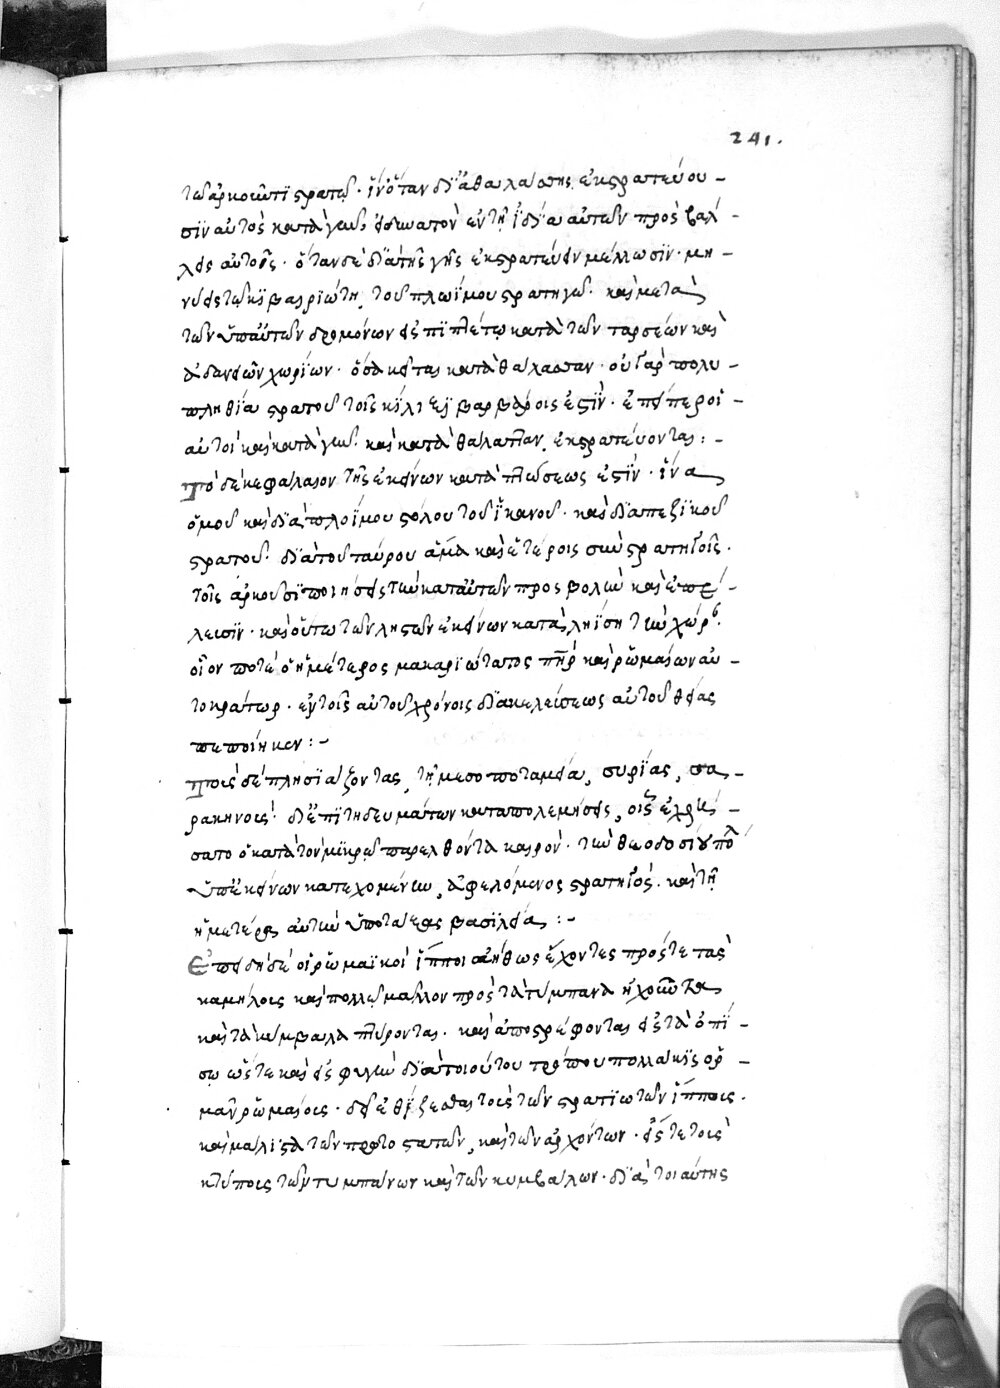 241.
τῶ ἀρκοῦντι στρατῶ. ἵν' ὅταν διὰ θαλάσσης ἐκστρατεύου-
σιν αὐτὸς κατὰ γῆν ἐν τῆ ἰδία αὐτῶν προσβάλ-
λης αὐτοῖς. ὅταν δὲ διὰ τῆς γῆς ἐκστρατεύειν μέλλωσιν. μη-
νύης τῶ κιβυρριώτη τοῦ πλωΐμου στρατηγῶ. καὶ μετὰ
τῶν ὑπ' αὐτὸν δρομόνων ἐπιπλέτω κατὰ τῶν ταρσέων καὶ
ἀδανέων χωρίων. ὅσα κεῖται κατὰ θάλασσαν. οὐ γὰρ πολυ-
πληθία στρατοῦ τοῖς κιλιξι βαρβάροις ἐστίν. ἐπείπερ οἱ
αὐτοὶ καὶ κατὰ γῆν καὶ κατὰ θάλατταν ἐκστρατεύονται:-
Τὸ δὲ κεφάλαιον τῆς ἐκείνων καταπτώσεως ἐστίν. ἵνα
ὁμοῦ καὶ διὰ πλοΐμου στόλου τοῦ ἱκανοῦ. καὶ διὰ πεζικοῦ
στρατοῦ. διὰ τοῦ ταύρου ἅμα καὶ ἑτέροις συστρατηγοῖς.
τοῖς ἀρκοῦσι ποιήσης τὴν κατ' αὐτῶν προσβολὴν καὶ ἐπέ-
λευσιν. καὶ οὕτω τῶν ληστῶν ἐκείνων καταληΐση τὴν χώρ.
οἷον ποτὲ ὁ ἡμέτερος μακαριώτατος πῆρ καὶ ῥωμαίων αὐ-
τοκράτωρ. ἐν τοῖς αὐτοῦ χρόνοις διὰ κελεύσεως αὐτοῦ θείας
πεποίηκεν:-
Τοῖς δὲ πλησιάζουσι τῆ μεσοποταμεία συρίας, σα-
ρακηνοῖς. δι' ἐπιτηδευμάτων καταπολεμήσης, οἷς ἐχρή-
σατο ὁ κατὰ τὸν μικρῶ παρελθόντα καιρὸν. τὴν θεοδοσιούπολ
ὑπ' ἐκείνων κατεχομένην ἀφελόμενος στρατηγὸς. καὶ τῆ
ἡμετέρα αὐτὴν ὑποτάξας βασιλεία:-
Ἐπειδὴ δὲ οἱ ῥωμαϊκοὶ ἵπποι ἀήθως ἔχοντες πρός τε τὰς
καμήλους καὶ πολλῶ μᾶλλον πρὸς τὰ τύμπανα ἠχοῦντα
καὶ τὰ κύμβαλα πτύρονται. καὶ ἀποστρέφονται εἰς τὰ ὀπί-
σω ὥστε καὶ εἰς φυγὴν διὰ τοιούτου τρόπου πολλάκις ὁρ-
μᾶν ῥωμαίοις. δεῖ ἐθίζεσθαι τοὺς τῶν στρατιωτῶν ἵππους.
καὶ μάλιστα τῶν πρωτοστατῶν, καὶ τῶν ἀρχόντων. εἴς τε τοὺς
κτύπους τῶν τυμπάνων καὶ τῶν κυμβάλων. διὰ τοιαύτης